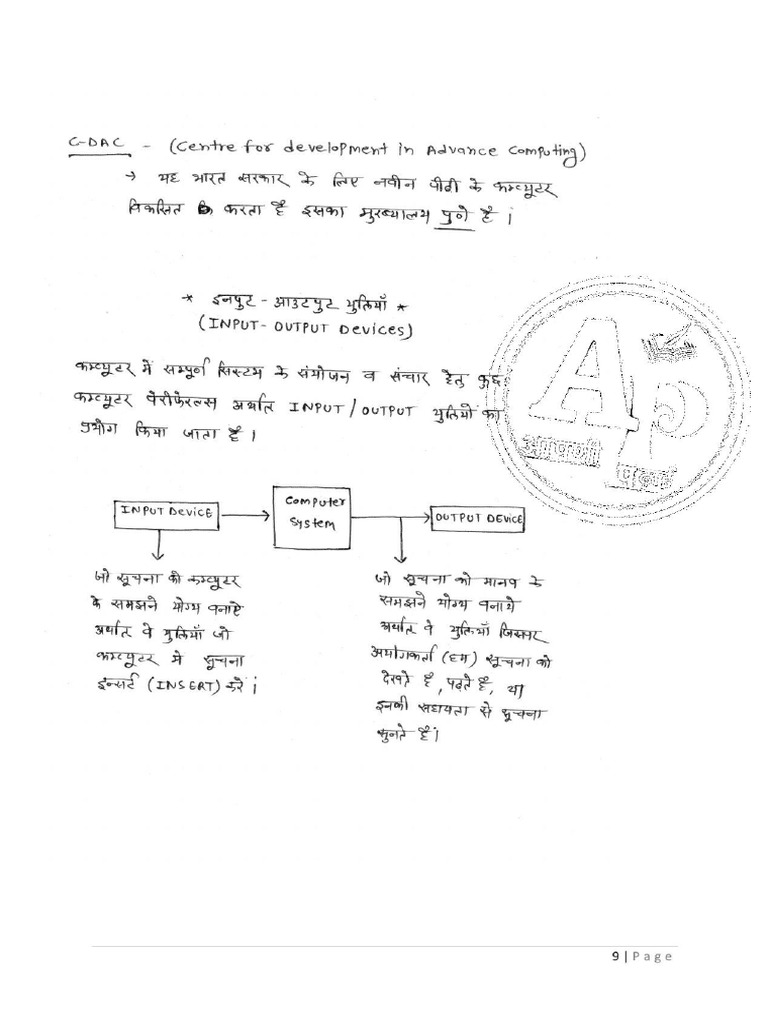 C-DAC - (Centre for development in Advance Computing)
→ यह भारत सरकार के लिए नवीन पीढी के कम्प्यूटर
विकसित करता है इसका मुख्यालय पुणे है।
* इनपुट - आउटपुट युक्तियाँ *
(INPUT- OUTPUT Devices)
कम्प्यूटर में सम्पूर्ण सिस्टम के संयोजन व संचार हेतु कुछ
कम्प्यूटर पेरीफेरल्स अर्थात INPUT/OUTPUT युक्तियों का
प्रयोग किया जाता है।
INPUT Device
Computer
System
OUTPUT DEVICE
जो सूचना को कम्प्यूटर
के समझने योग्य बनाऐ
अर्थात वे युक्तियाँ जो
कम्प्यूटर मे सूचना
इन्सर्ट (INSERT) करे।
जो सूचना को मानव के
समझने योग्य बनाये
अर्थात वे युक्तियाँ जिसपर
(हम) सूचना को
देखते है, पढ़ते है, या
इनकी सहायता से सूचना
सुनते है।
Ap
आपणी
पढाई
9 | Page